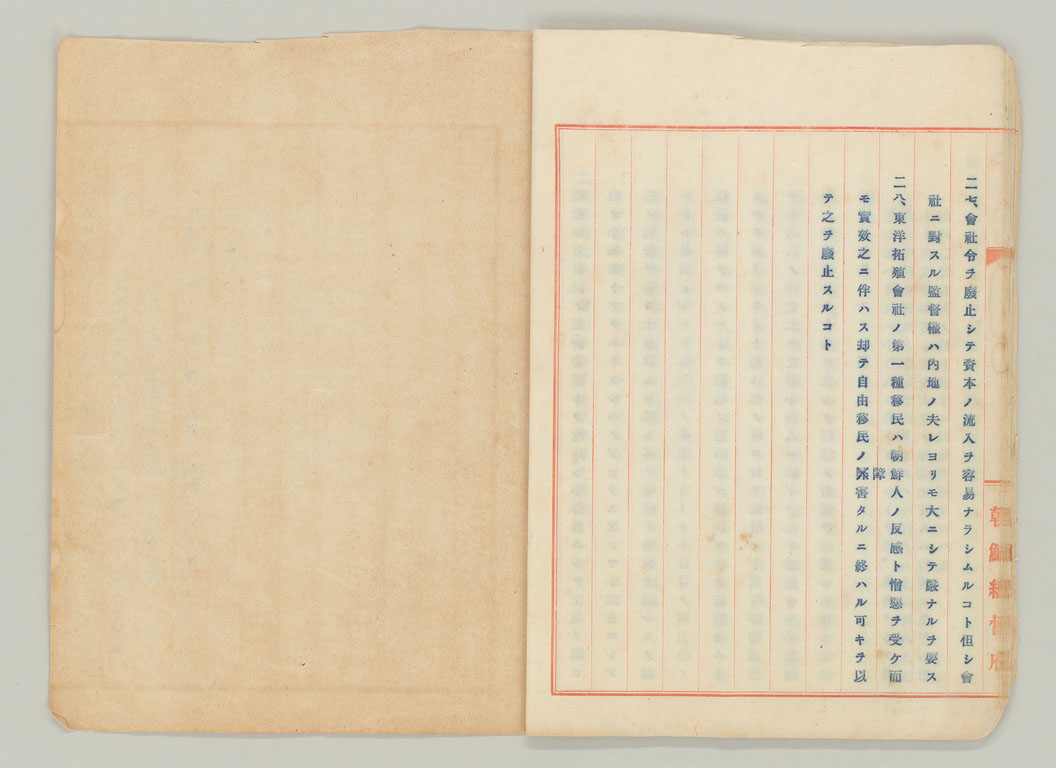 二七、會社令ヲ廢止シテ資本ノ流入ヲ容易ナラシムルコト但シ會
社ニ對スル監督權ハ內地ノ夫レヨリモ大ニシテ嚴ナルヲ要ス
二八、東洋拓殖會社ノ第一種移民ハ朝鮮人ノ反感ト憎惡ヲ受ケ而
障
モ實效之ニ伴ハス却テ自由移民ノ害タルニ終ハル可キヲ以
テ之ヲ廢止スルコト
朝鮮總督府